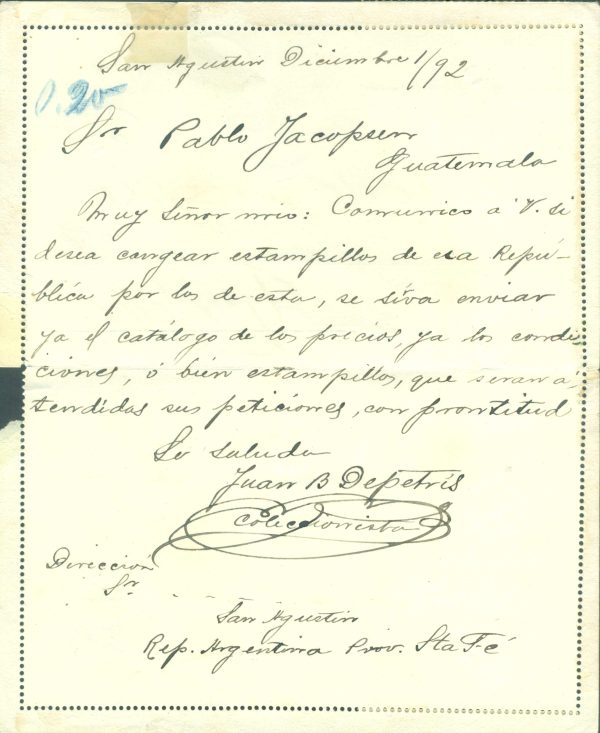 San Agustin Diciembre 1/92
0.20
Sr Pablo Jacopsen
Guatemala
Muy Señor mio: Comunico á V. si
desea cangear estampillas de esa Repú-
blica por las de esta, se siva enviar
ya el catálogo de los precios, ya las condi-
ciones, ó bien estampillas, que seran a-
tendidas sus peticiones, con prontitud
Lo saluda
Juan B Depetris
Coleccionista
Dirección
Sr - - - -
San Agustin
Rep. Argentina Prov. Sta Fé